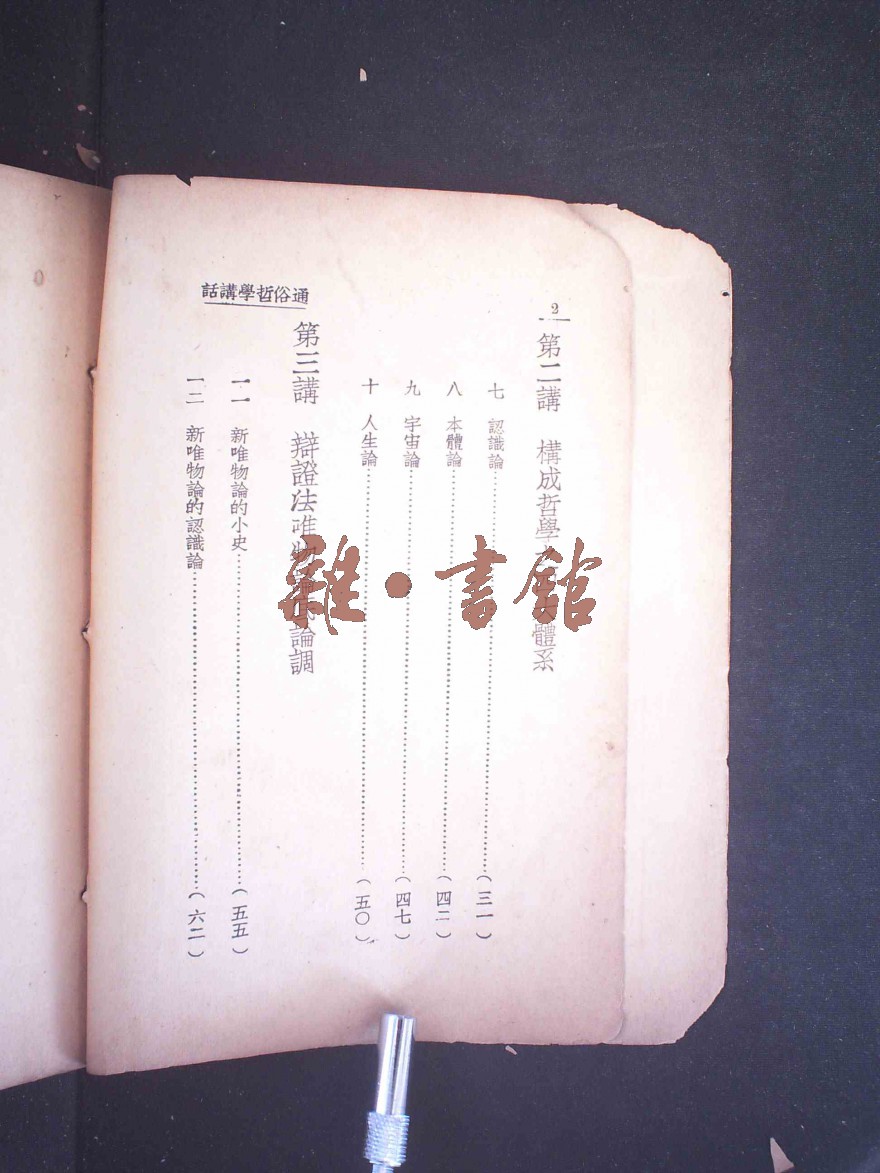 通俗哲學講話
2
第二講　構成哲學　體系
七　認識論……（三一）
八　本體論……（四二）
九　宇宙論……（四七）
十　人生論……（五〇）
第三講　辯證法唯物論　論調
一一　新唯物論的小史……（五五）
一二　新唯物論的認識論……（六二）
雜·書館